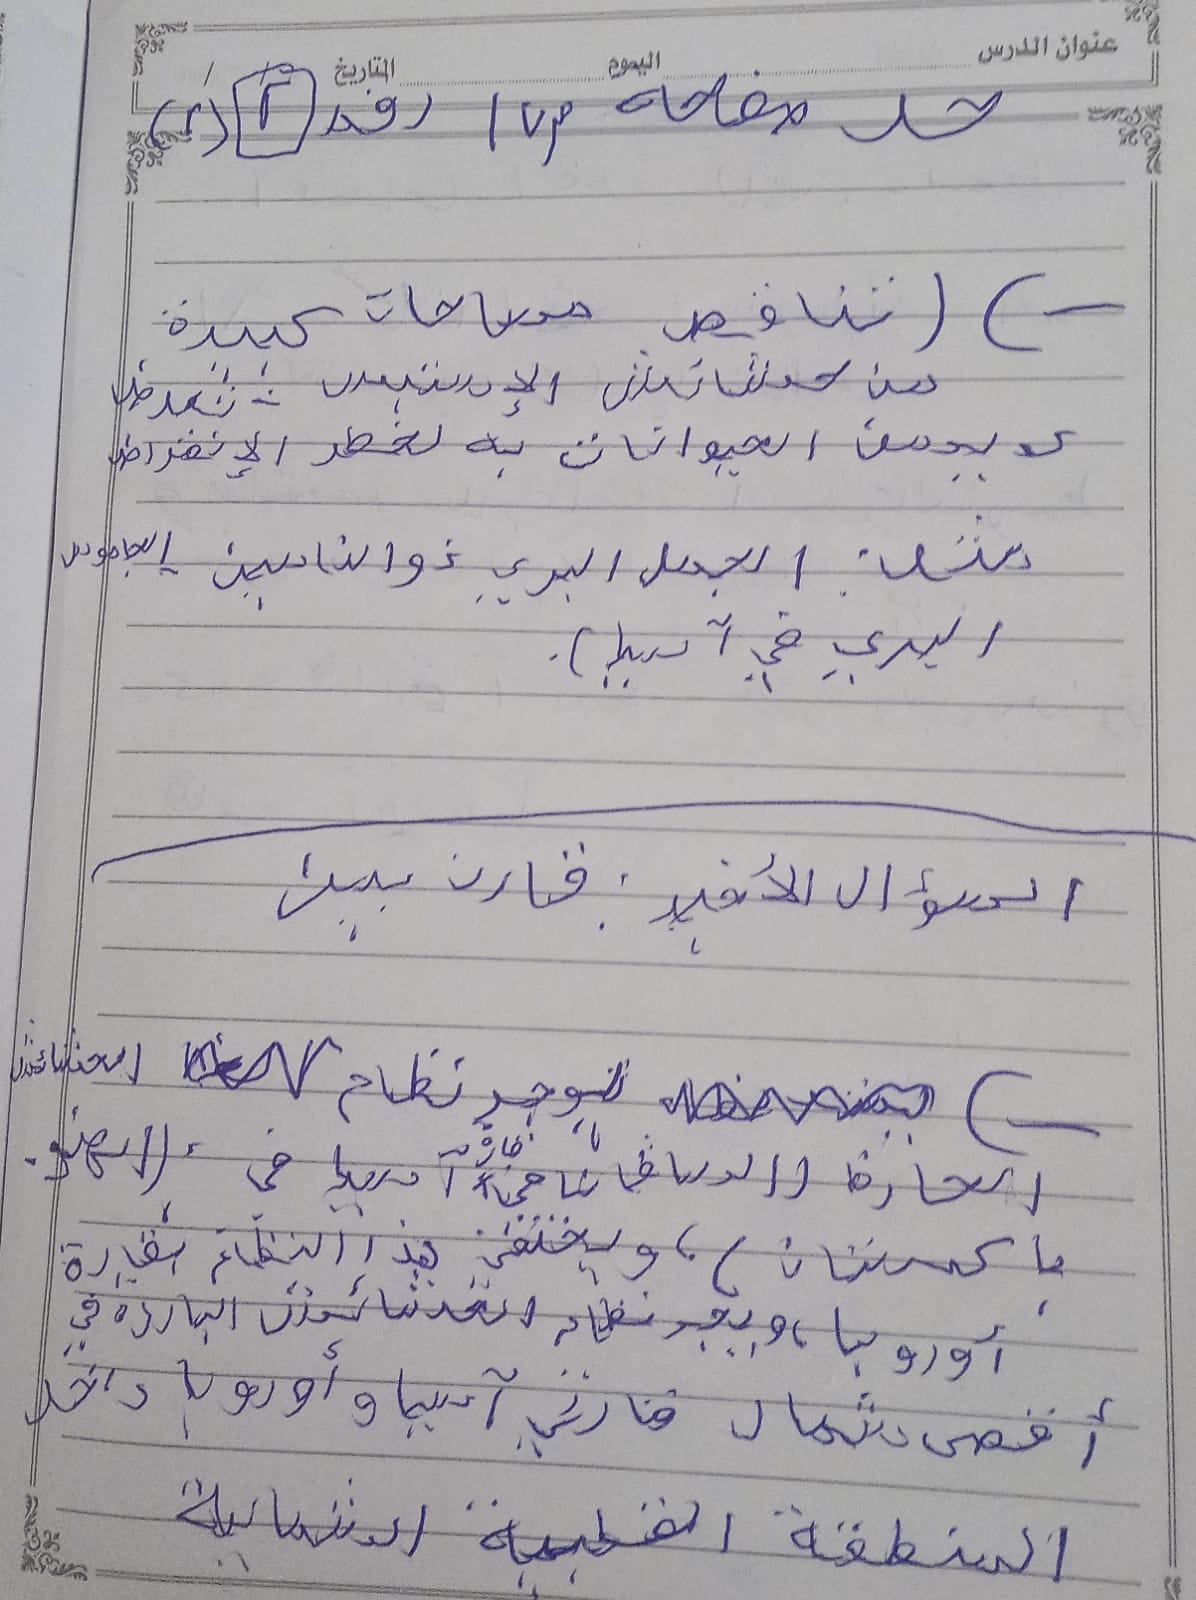 عنوان الدرس اليوم التاريخ / /
حل صفحة ١٧٣ رقم ٢ (٢)
(تناقص مساحات كبيرة
من حشائش الإستبس : تعرض
بعض الحيوانات به لخطر الإنقراض
مثل: الجمل البري ذو النامين الجاموس
البري في آسيا).
السؤال الأخير : قارن بين
يوجد نظام الحشائش
الحارة (السافانا في قارة آسيا في : (الهند -
باكستان)، ويختفي هذا النظام بقارة
أوروبا، ويوجد نظام الحشائش الباردة في
أقصى شمال قارتي آسيا وأوروبا داخل
المنطقة القطبية الشمالية